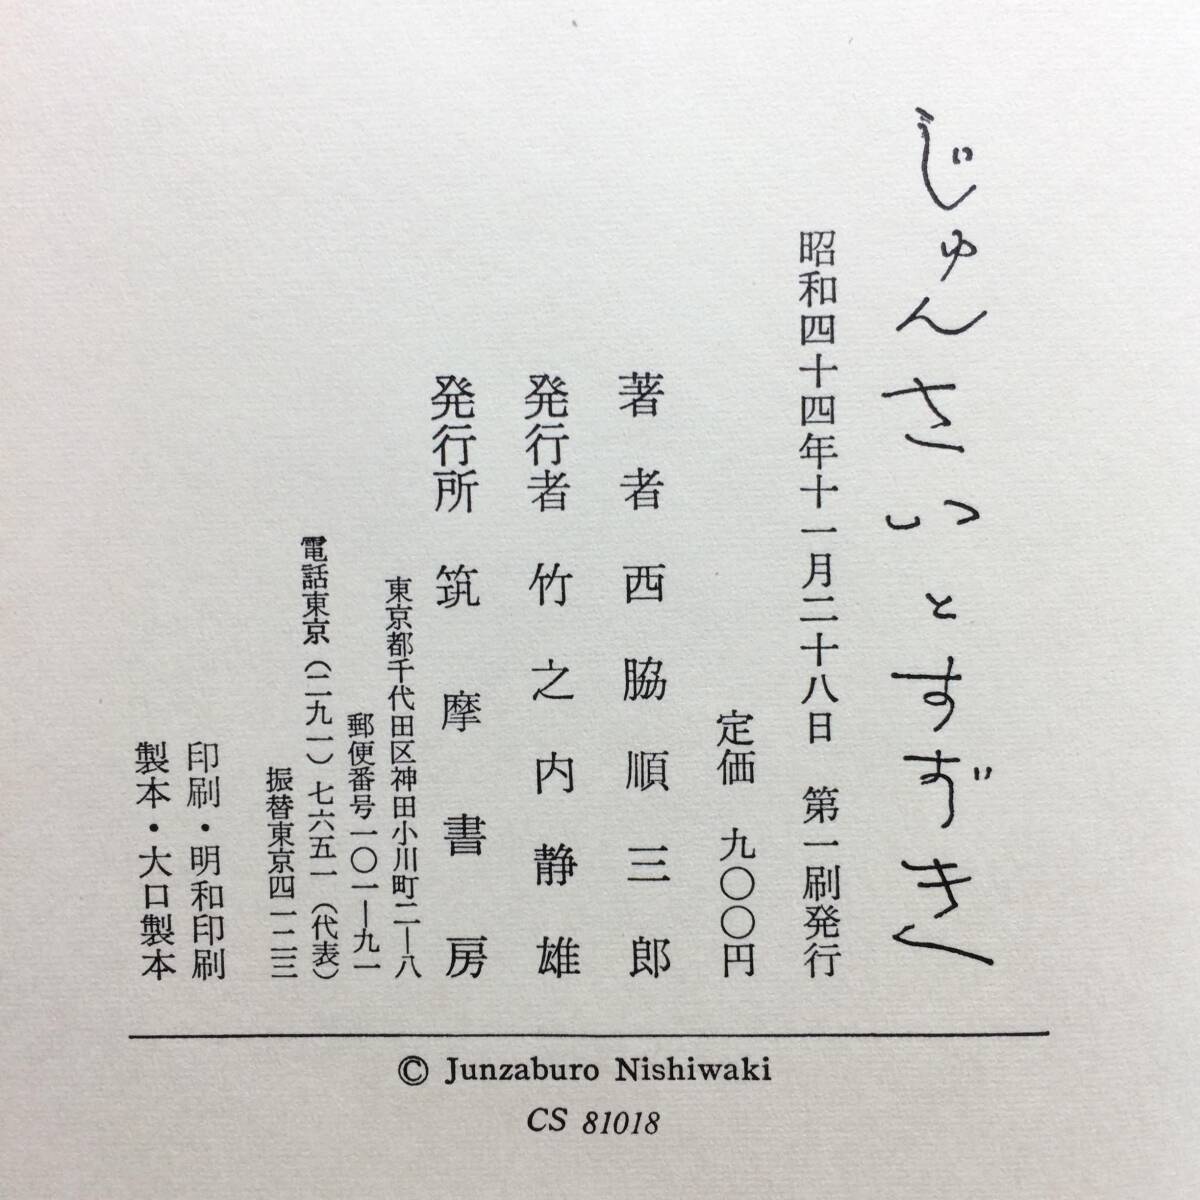 じゅんさいとすずき
昭和四十四年十一月二十八日　第一刷発行
定価　九〇〇円
著者　西脇順三郎
発行者　竹之内静雄
発行所　筑摩書房
東京都千代田区神田小川町二―八
郵便番号一〇一―九一
電話東京（二九一）七六五一（代表）
振替東京四一二三
印刷・明和印刷
製本・大口製本
© Junzaburo Nishiwaki
CS 81018